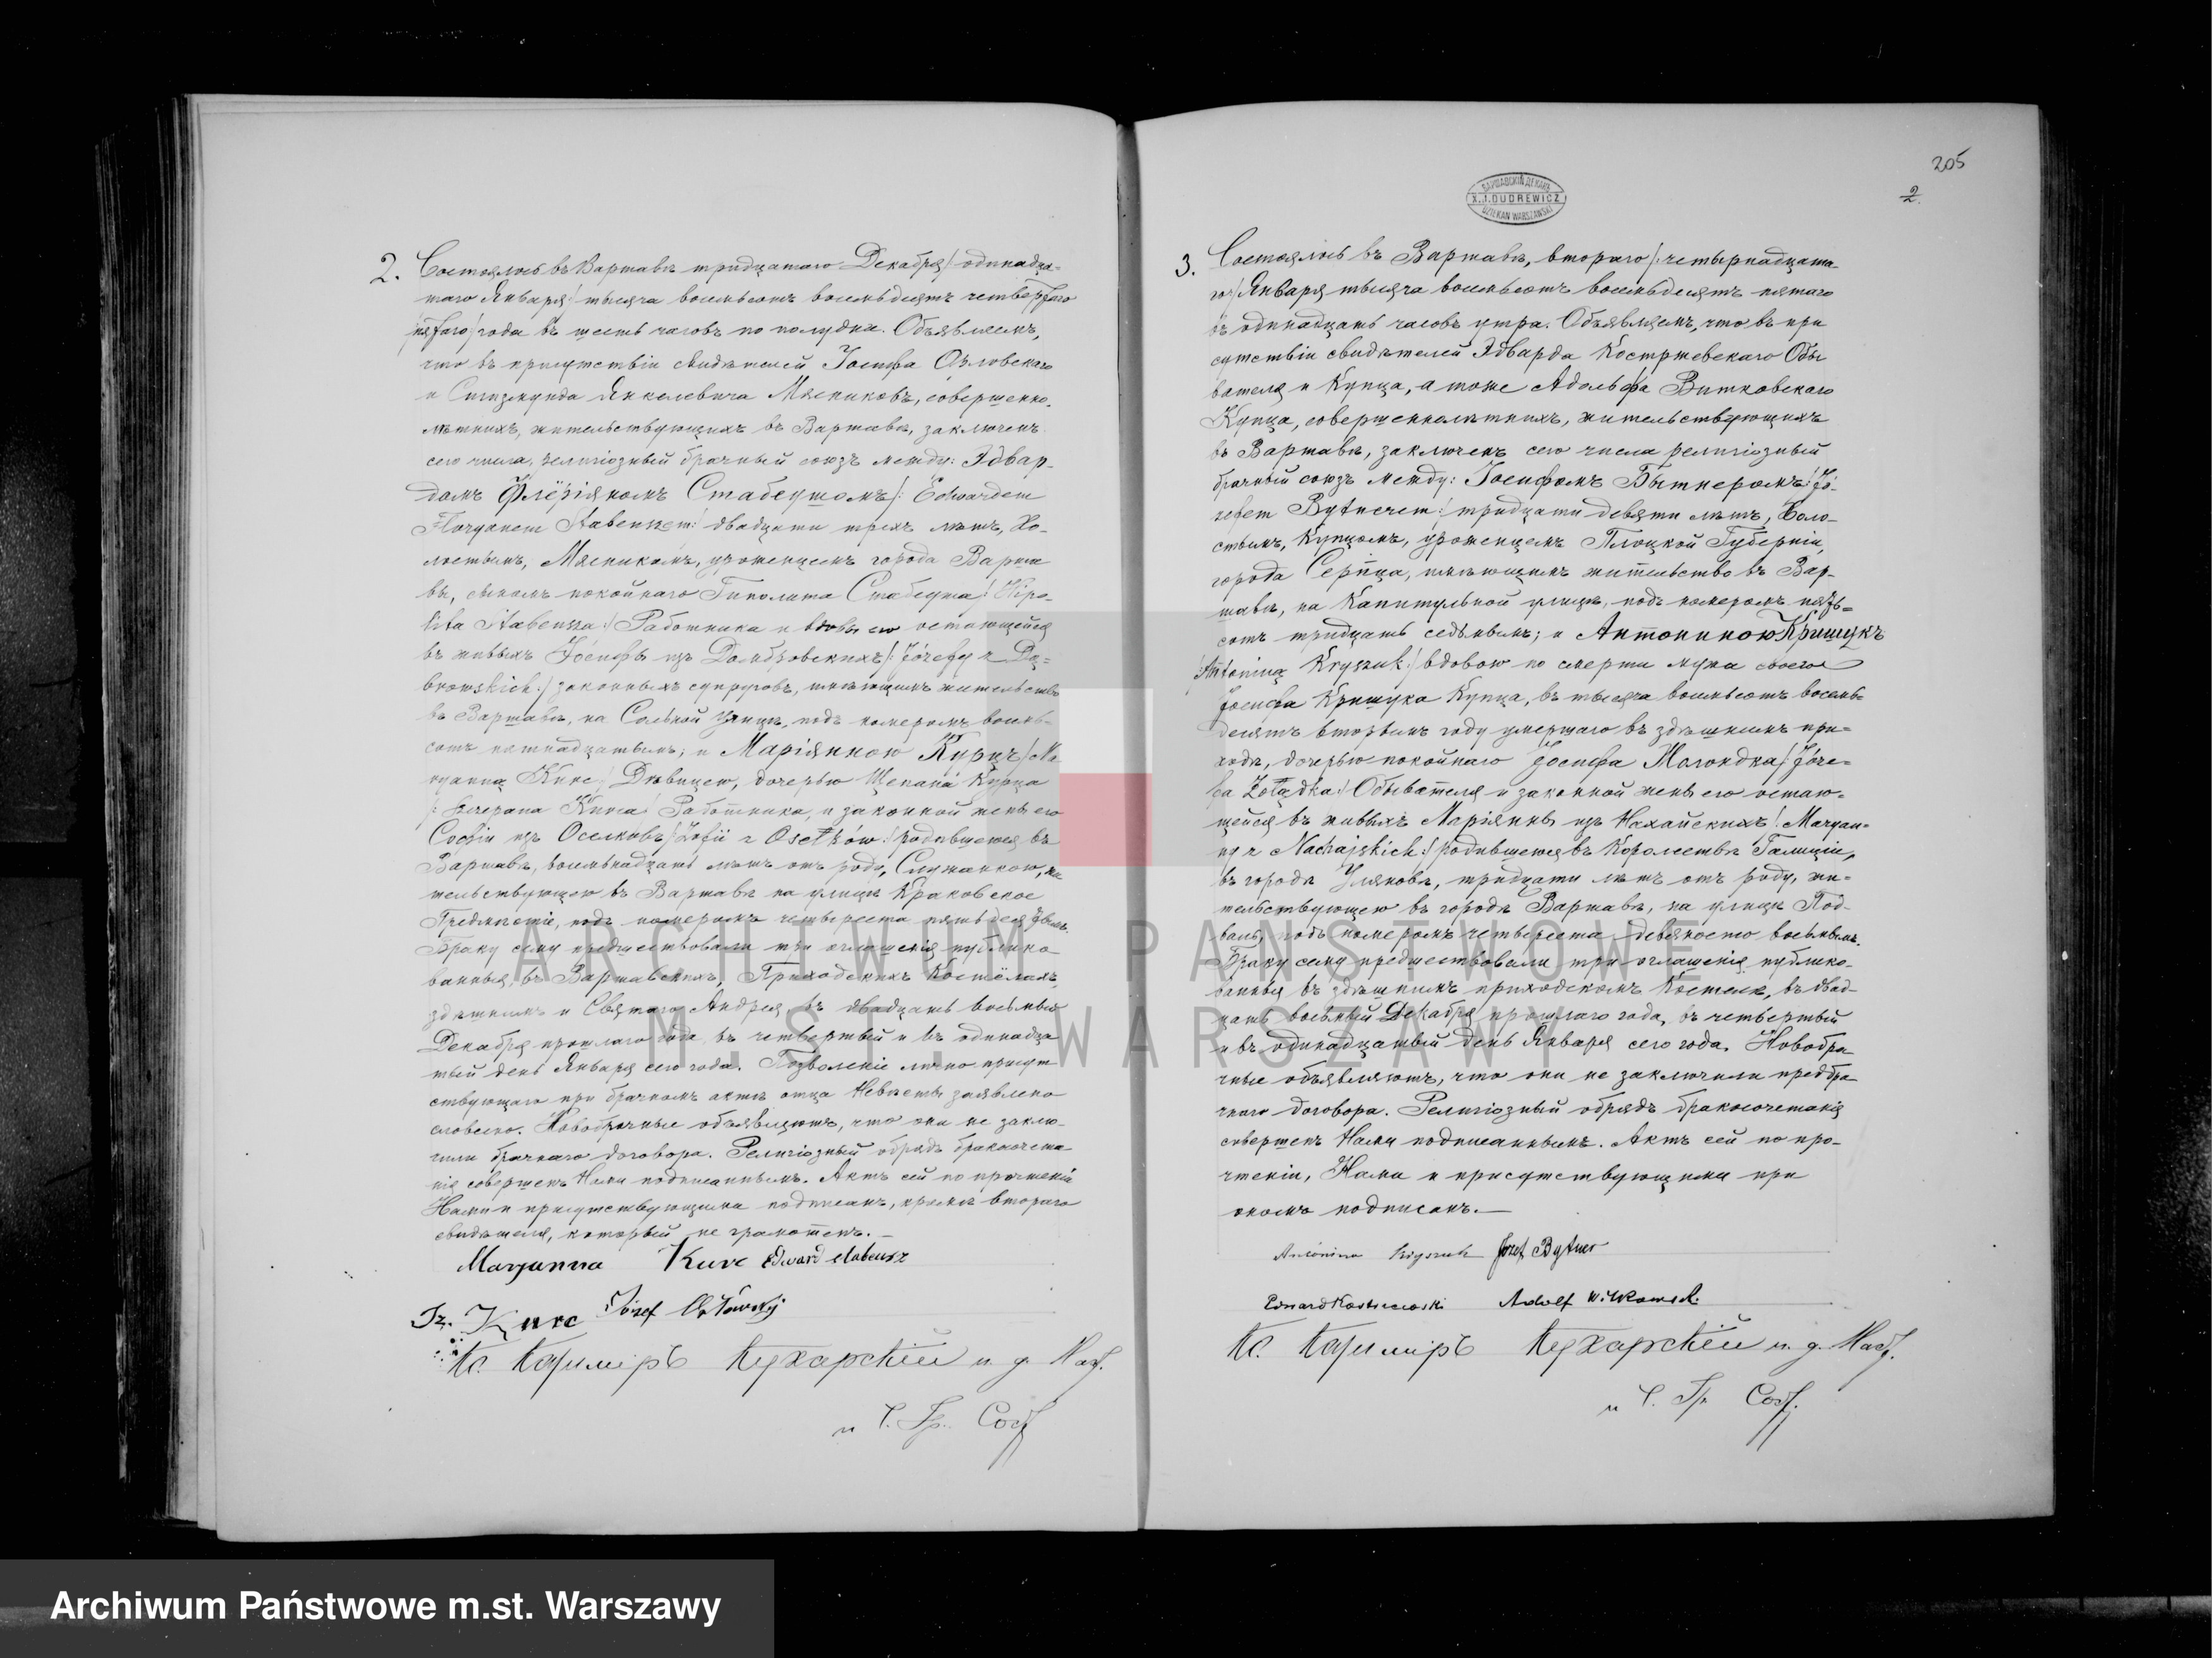 205
2
ВАРШАВСКІЙ ДЕКАНЪ
X.J.DUDREWICZ
DZIEKAN WARSZAWSKI
2. Состоялось въ Варшавѣ тридцатаго Декабря /: одинадца-
таго Января :/ тысяча восемьсотъ восемьдесятъ четвертаго
/пятаго/ года въ шесть часовъ по полудни. Объявляемъ,
что въ присутствіи свидѣтелей Іосифа Озловскаго
и Сигизмунда Янкелевича Мясниковъ, совершенно-
лѣтнихъ, жительствующихъ въ Варшавѣ, заключенъ
сего числа, религіозный брачный союзъ между: Эдвар-
домъ Флёріяномъ Стабеушомъ /: Edwardem
Floryanem Stabeuszem :/ двадцати трехъ лѣтъ, Хо-
лостымъ, Мясникомъ, уроженцемъ города Варша
вы, сыномъ покойнаго Гиполита Стабеуша /: Hipo-
lita Stabeusza :/ Работника и вдовы его остающейся
въ живыхъ Іосифы изъ Домбровскихъ /: Józefy z Dą-
browskich :/ законныхъ супруговъ, имѣющимъ жительство
въ Варшавѣ, на Сольной улицѣ, подъ номеромъ восемь-
сотъ пятнадцатымъ; и Маріянною Курцъ /: Ma
ryanną Kurc :/ Дѣвицею, дочерью Щепана Курца
/: Szczepana Kurca :/ Работника, и законной жены его
Софіи изъ Оселковъ /: Zofii z Osełków :/ родившеюся въ
Варшавѣ, восемнадцати лѣтъ отъ роду, Служанкою, жи
тельствующею въ Варшавѣ на улицѣ Краковское
Предмѣстіе, подъ номеромъ четыреста пятьдесятымъ.
Браку сему предшествовали три оглашенія публико-
ванныя, въ Варшавскихъ, Приходскихъ Костёлахъ,
здѣшнемъ и Святаго Андрея, въ двадцать восьмый
Декабря прошлаго года, въ четвертый и въ одинадца
тый день Января сего года. Позволеніе лично присут
ствующаго при брачномъ актѣ отца Невѣсты заявлено
словесно. Новобрачные объявляютъ, что они не заклю-
чили брачнаго договора. Религіозный обрядъ бракосочета-
нія совершенъ Нами подписаннымъ. Актъ сей по прочтеніи
Нами и присутствующими подписанъ, кромѣ втораго
свидѣтеля, который не грамотенъ.
Maryanna Kurc Edward Stabeusz
Sz. Kurc Józef
Кс. Казиміръ Кухарскій и. д. Наст.
и Ч. Гр. Сост.
3. Состоялось въ Варшавѣ, втораго /: четырнадцата-
го :/ Января тысяча восемьсотъ восемьдесятъ пятаго
въ одинадцать часовъ утра. Объявляемъ, что въ при
сутствіи свидѣтелей Эдварда Костржевскаго Обы
вателя и Купца, а тоже Адольфа Витковскаго
Купца, совершеннолѣтнихъ, жительствующихъ
въ Варшавѣ, заключенъ сего числа религіозный
брачный союзъ между: Іосифомъ Бытнеромъ /: Jó-
zefem Bytnerem :/ тридцати девяти лѣтъ, Холо-
стымъ, Купцомъ, уроженцемъ Плоцкой Губерніи,
города Серпца, имѣющимъ жительство въ Вар-
шавѣ, на Капитульной улицѣ, подъ номеромъ пять-
сотъ тридцать седьмымъ; и Антониною Кришукъ
/: Antoniną Kryszuk :/ вдовою по смерти мужа своего
Іосифа Кришука Купца, въ тысяча восемьсотъ восемь-
десятъ вторымъ году умершаго въ здѣшнемъ при-
ходѣ, дочерью покойнаго Іосифа Жолондка /: Józe-
fa Żołądka :/ Обывателя и законной жены его остаю-
щейся въ живыхъ Маріянны изъ Нахайскихъ /: Maryan-
ny z Nachajskich :/ родившеюся въ Королевствѣ Галиціи,
въ городѣ Уляновѣ, тридцати лѣтъ отъ роду, жи-
тельствующею въ городѣ Варшавѣ, на улицѣ Под-
валь, подъ номеромъ четыреста девяносто восьмымъ.
Браку сему предшествовали три оглашенія публико-
ванныя въ здѣшнемъ приходскомъ Костелѣ, въ двад-
цать восьмый Декабря прошлаго года, въ четвертый
и въ одинадцатый день Января сего года. Новобра-
чные объявляютъ, что они не заключили предбра-
чнаго договора. Религіозный обрядъ бракосочетанія
совершенъ Нами подписаннымъ. Актъ сей по про-
чтеніи, Нами и присутствующими при
ономъ подписанъ.
Antonina Kryszuk Józef Bytner
Edward Kostrzewski Adolf Witkowski
Кс. Казиміръ Кухарскій и. д. Наст.
и Ч. Гр. Сост.
ARCHIWUM PAŃSTWOWE
M.ST. WARSZAWY
Archiwum Państwowe m.st. Warszawy